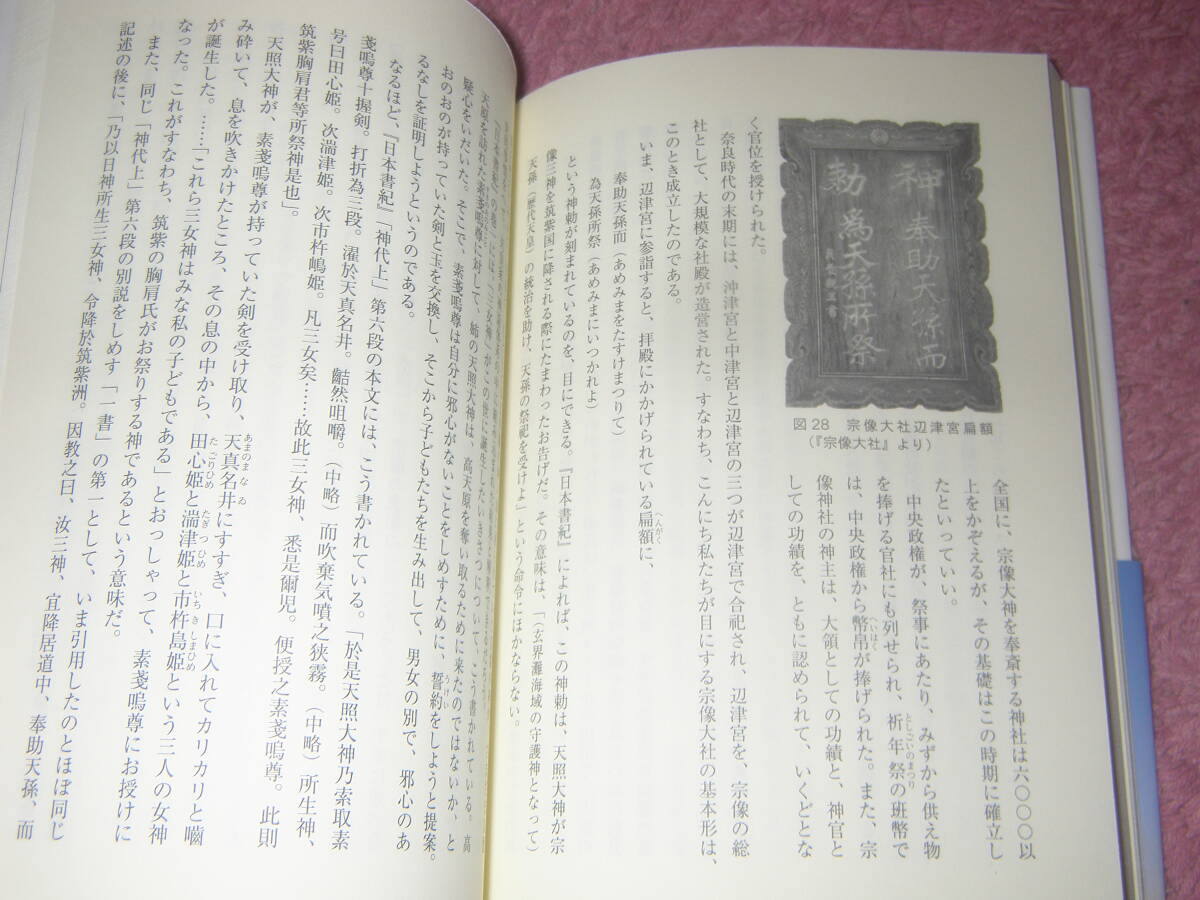 神勅
奉助天孫而
為天孫所祭
図28 宗像大社辺津宮扁額
（『宗像大社』より）
全国に、宗像大神を奉斎する神社は六〇〇〇以
上をかぞえるが、その基礎はこの時期に確立し
たといっていい。
中央政権が、祭事にあたり、みずから供え物
を捧げる官社にも列せられ、祈年祭の班幣で
としごいのまつり
は、中央政権から幣帛が捧げられた。また、宗
へいはく
像神社の神主は、大領としての功績と、神官と
しての功績を、ともに認められて、いくどとな
く官位を授けられた。
奈良時代の末期には、沖津宮と中津宮と辺津宮の三つが辺津宮で合祀され、辺津宮を、宗像の総
社として、大規模な社殿が造営された。すなわち、こんにち私たちが目にする宗像大社の基本形は、
このとき成立したのである。
いま、辺津宮に参詣すると、拝殿にかかげられている扁額に、
へんがく
奉助天孫而（あめみまをたすけまつりて）
為天孫所祭（あめみまにいつかれよ）
という神勅が刻まれているのを、目にできる。『日本書紀』によれば、この神勅は、天照大神が宗
像三神を筑紫国に降される際にたまわったお告げだ。その意味は、「（玄界灘海域の守護神となって）
天孫（歴代天皇）の統治を助け、天孫の祭祀を受けよ」という命令にほかならない。
がこの世に誕生したいきさつについて、こう書かれている。高
天原を訪れた素戔嗚尊に対して、姉の天照大神は、高天原を奪い取るために来たのではないか、と
疑心をいだいた。そこで、素戔嗚尊は自分に邪心がないことをしめすために、誓約をしようと提案。
うけい
おのおのが持っていた剣と玉を交換し、そこから子どもたちを生み出して、男女の別で、邪心のあ
るなしを証明しようというのである。
なるほど、『日本書紀』「神代上」第六段の本文には、こう書かれている。「於是天照大神乃索取素
戔嗚尊十握剣。打折為三段。濯於天真名井。齧然咀嚼。（中略）而吹棄気噴之狭霧。（中略）所生神、
号曰田心姫。次湍津姫。次市杵嶋姫。凡三女矣……故此三女神、悉是爾児。便授之素戔嗚尊。此則
筑紫胸肩君等所祭神是也」。
天照大神が、素戔嗚尊が持っていた剣を受け取り、天真名井にすすぎ、口に入れてカリカリと嚙
あまのまなゐ
み砕いて、息を吹きかけたところ、その息の中から、田心姫と湍津姫と市杵島姫という三人の女神
たごりひめ
たぎつひめ
いちきしまひめ
が誕生した。……「これら三女神はみな私の子どもである」とおっしゃって、素戔嗚尊にお授けに
なった。これがすなわち、筑紫の胸肩氏がお祭りする神であるという意味だ。
また、同じ「神代上」第六段の別説をしめす「一書」の第一として、いま引用したのとほぼ同じ
記述の後に、「乃以日神所生三女神、令降於筑紫洲。因教之曰、汝三神、宜降居道中、奉助天孫、而